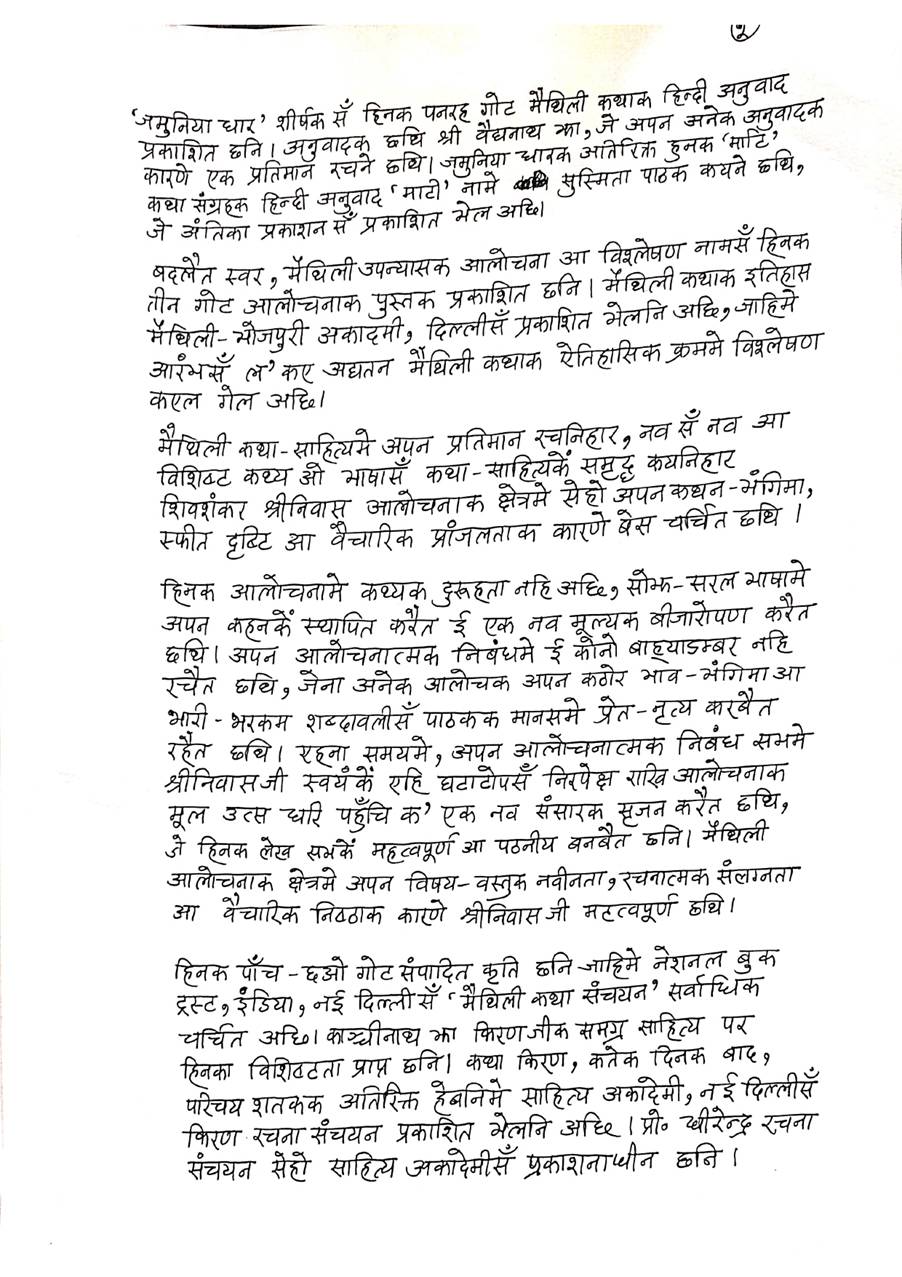 २
'जमुनिया धार' शीर्षक सँ हिनक पनरह गोट मैथिली कथाक हिन्दी अनुवाद
प्रकाशित छनि। अनुवादक छथि श्री वैद्यनाथ झा, जे अपन अनेक अनुवादक
कारणे एक प्रतिमान रचने छथि। जमुनिया धारक अतिरिक्त हुनक 'माटि'
कथा संग्रहक हिन्दी अनुवाद 'माटी' नामे सुस्मिता पाठक कयने छथि,
जे अंतिका प्रकाशन सँ प्रकाशित भेल अछि।
बदलैत स्वर, मैथिली उपन्यासक आलोचना आ विश्लेषण नामसँ हिनक
तीन गोट आलोचनाक पुस्तक प्रकाशित छनि। मैथिली कथाक इतिहास
मैथिली-भोजपुरी अकादमी, दिल्लीसँ प्रकाशित भेलनि अछि, जाहिमे
आरंभसँ ल' कए अद्यतन मैथिली कथाक ऐतिहासिक क्रममे विश्लेषण
कएल गेल अछि।
मैथिली कथा-साहित्यमे अपन प्रतिमान रचनिहार, नव सँ नव आ
विशिष्ट कथ्य ओ भाषासँ कथा-साहित्यकें समृद्ध कयनिहार
शिवशंकर श्रीनिवास आलोचनाक क्षेत्रमे सेहो अपन कथन-भंगिमा,
स्फीत दृष्टि आ वैचारिक प्रांजलताक कारणे बेस चर्चित छथि।
हिनक आलोचनामे कथ्यक दुरूहता नहि अछि, सोझ-सरल भाषामे
अपन कहनकें स्थापित करैत ई एक नव मूल्यक बीजारोपण करैत
छथि। अपन आलोचनात्मक निबंधमे ई कोनो बाह्याडम्बर नहि
रचैत छथि, जेना अनेक आलोचक अपन कठोर भाव-भंगिमा आ
भारी-भरकम शब्दावलीसँ पाठकक मानसमे प्रेत-नृत्य करबैत
रहैत छथि। एहना समयमे, अपन आलोचनात्मक निबंध सभमे
श्रीनिवास जी स्वयंकें एहि घटाटोपसँ निरपेक्ष राखि आलोचनाक
मूल उत्स धरि पहुँचि क' एक नव संसारक सृजन करैत छथि,
जे हिनक लेख सभकें महत्वपूर्ण आ पठनीय बनबैत छनि। मैथिली
आलोचनाक क्षेत्रमे अपन विषय-वस्तुक नवीनता, रचनात्मक संलग्नता
आ वैचारिक निष्ठाक कारणे श्रीनिवास जी महत्वपूर्ण छथि।
हिनक पाँच-छओ गोट संपादित कृति छनि जाहिमे नेशनल बुक
ट्रस्ट, इंडिया, नई दिल्लीसँ 'मैथिली कथा संचयन' सर्वाधिक
चर्चित अछि। काञ्चीनाथ झा किरणजीक समग्र साहित्य पर
हिनका विशिष्टता प्राप्त छनि। कथा किरण, कतेक दिनक बाद,
परिचय शतकक अतिरिक्त हेबनिमे साहित्य अकादेमी, नई दिल्लीसँ
किरण रचना संचयन प्रकाशित भेलनि अछि। प्रो॰ धीरेन्द्र रचना
संचयन सेहो साहित्य अकादेमीसँ प्रकाशनाधीन छनि।